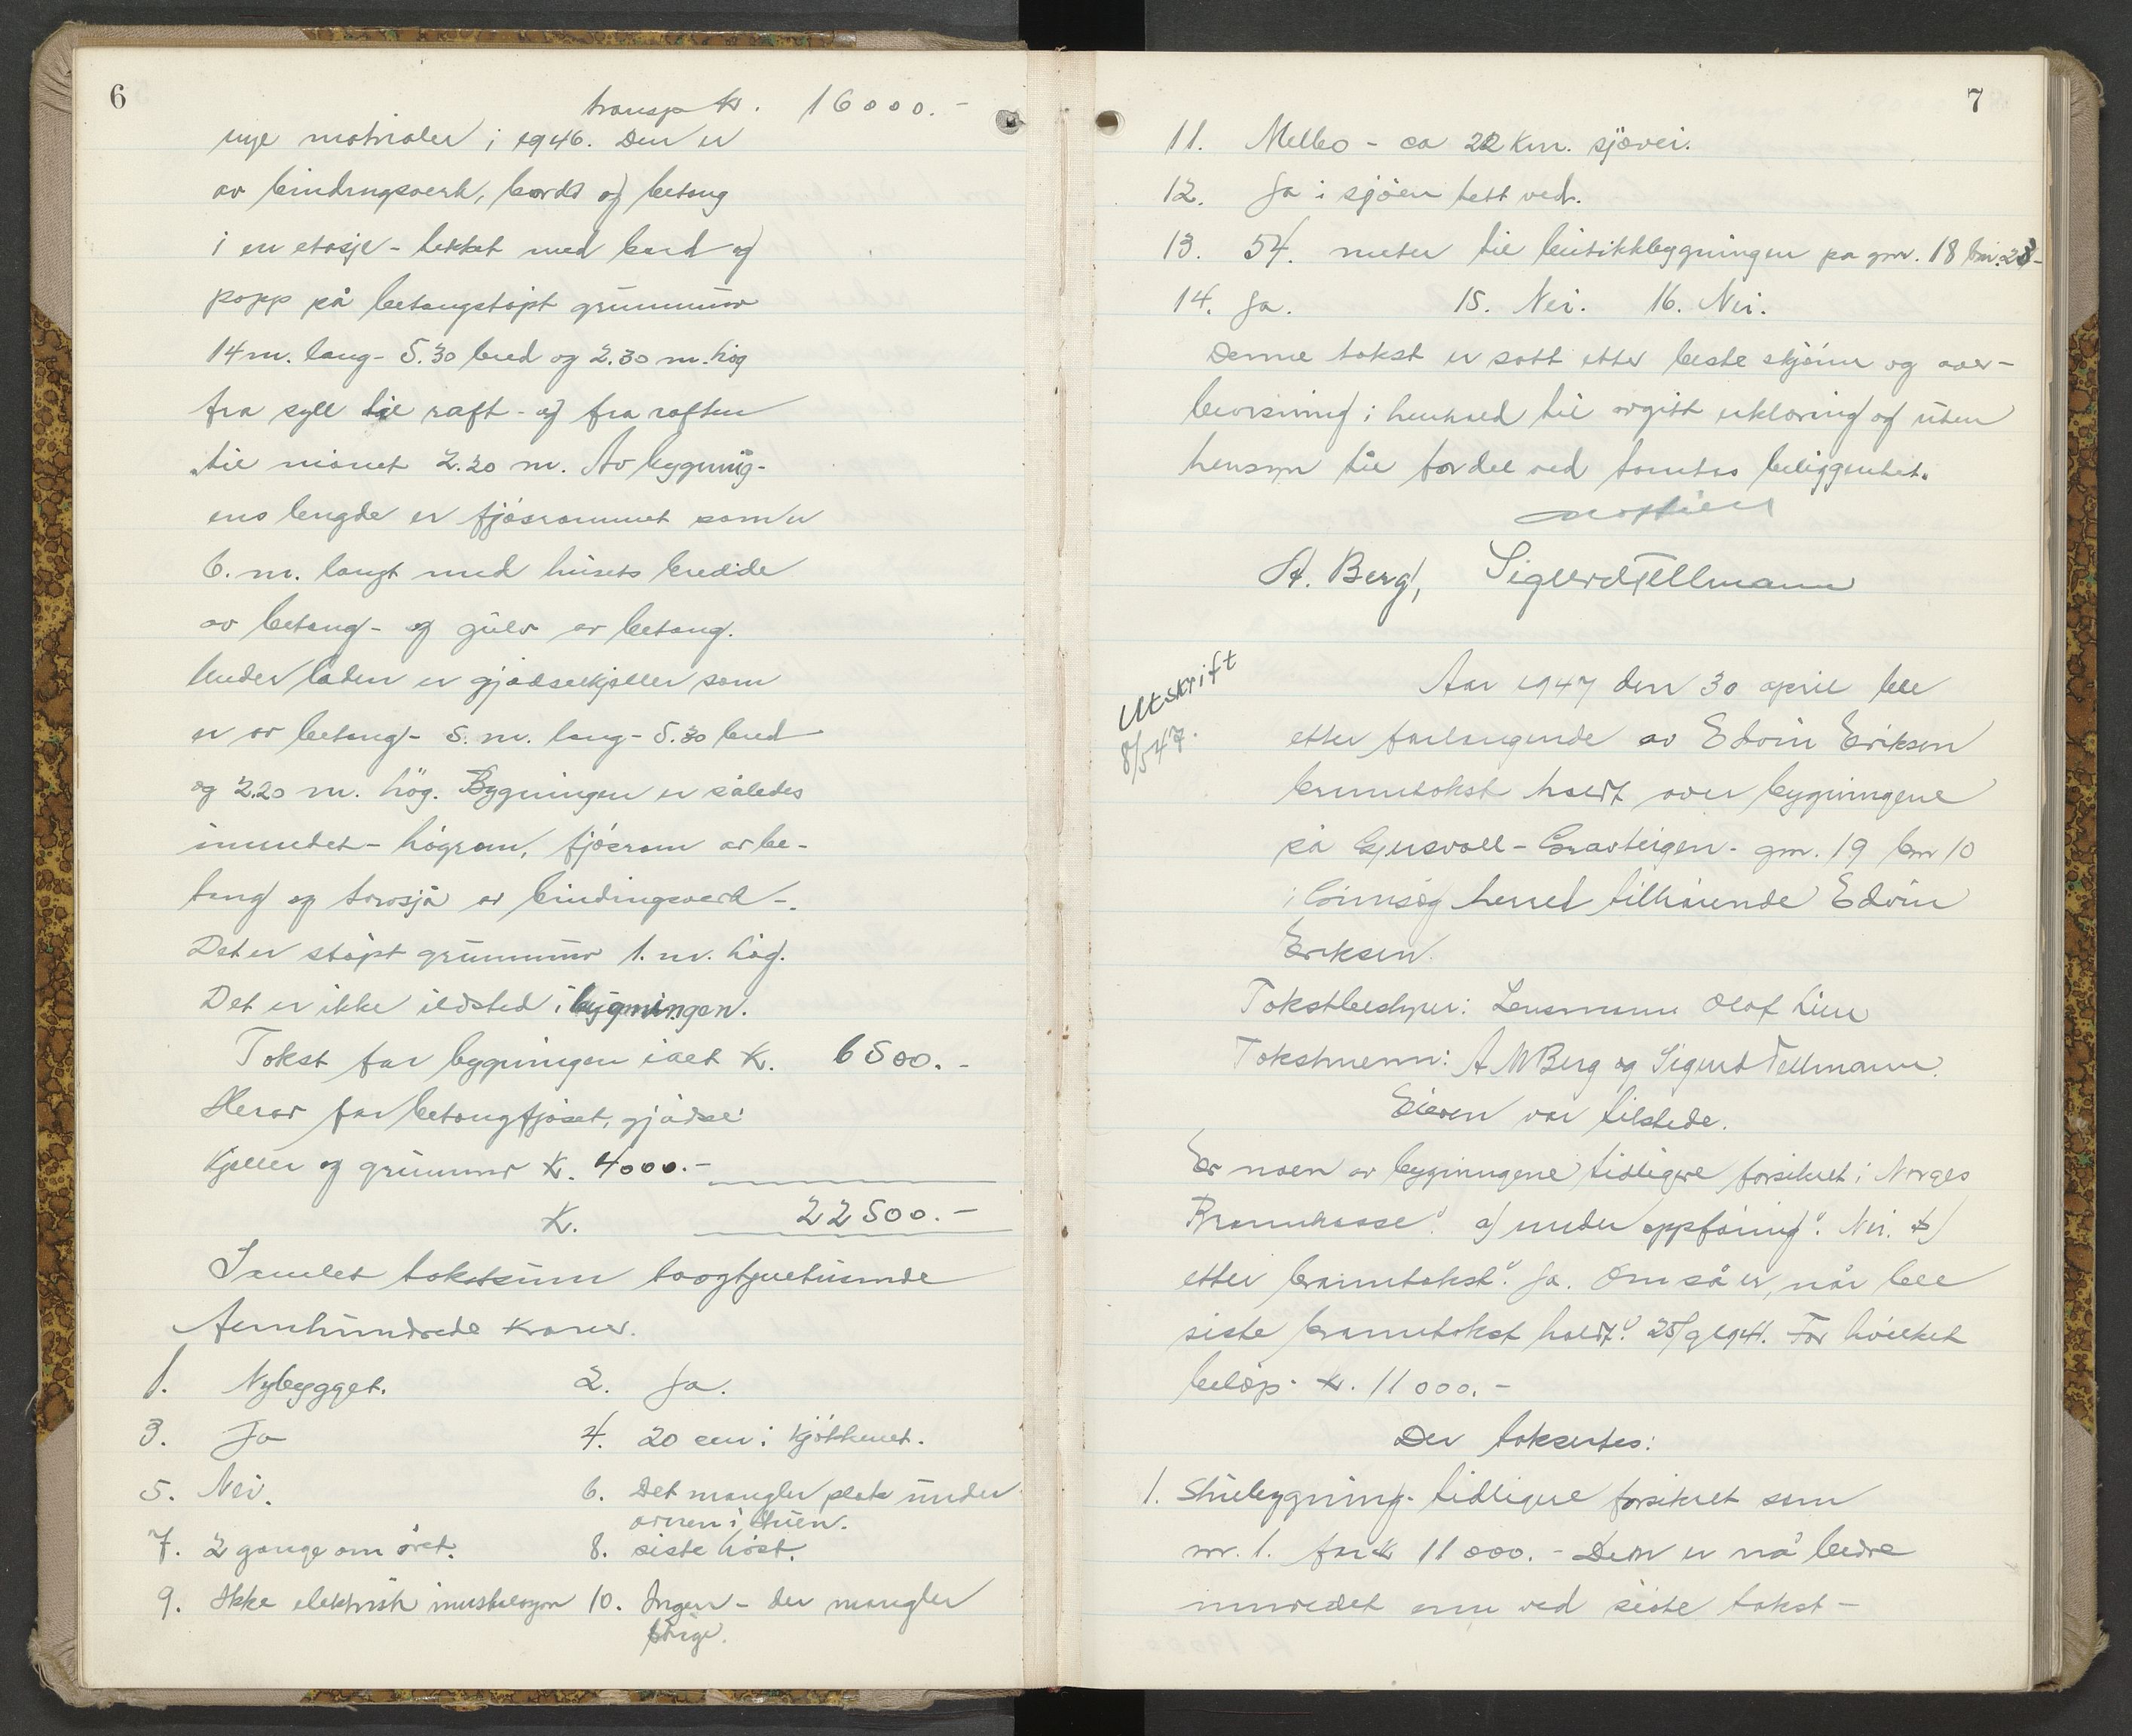 6
transp kr. 16000.-
nye matrialer i 1946. Den er
av bindingsverk, bord og betong
i en etasje - tekket med bord og
papp på betongstøpt grunnmur
14 m. lang - 5.30 bred og 2.30 m. høg
fra syll til raft - og fra raften
til mønet 2.20 m. Av bygning-
ens lengde er fjøsrommet som er
6. m. langt med husets bredde
av betong - og gulv av betong.
Under låden er gjødselkjeller som
er av betong - 5. m. lang - 5.30 bred
og 2.20 m. høg. Bygningen er således
innredet - høgrom, fjøsrom av be-
tong og torvsjå av bindingsverk -.
Det er støpt grunnmur 1. m. høg.
Det er ikke ildsted i bygningen.
Takst for bygningen ialt Kr. 6500.-
Herav for betongfjøset, gjødsel
kjeller og grunnmur Kr. 4000.-
Kr. 22500.-
Samlet takstsum toogtjuetusinde
femhundrede kroner.
1. Nybygget. 2. Ja.
3. Ja 4. 20 cm i kjøkkenet.
5. Nei. 6. Det mangler plate under
ovnen i stuen.
7. 2 gange om året. 8. siste høst.
9. Ikke elektrisk installasjon 10. Ingen - der mangler
stige.
7
11. Melbo - ca 22 km. sjøvei.
12. Ja i sjøen tett ved.
13. 54. meter til butikkbygningen på gnr. 18 bnr. 28-
14. Ja. 15. Nei. 16. Nei.
Denne takst er satt etter beste skjønn og over-
bevisning i henhold til avgitt erklæring og uten
hensyn til fordel ved tomtens beliggenhet.
A. Berg, Sigurd Tellmann
Utskrift
8/5 47.
Aar 1947 den 30 april ble
etter forlangende av Edvin Eriksen
branntakst holdt over bygningene
på Gjusvoll - Gravteigen - gnr. 19 bnr 10
i herred tilhørende Edvin
Eriksen.
Takstbestyrer: Lensmann Olaf Lien
Takstmenn: A M Berg og Sigurd Tellmann.
Eieren var tilstede.
Er noen av bygningene tidligere forsikret i Norges
Brannkasse? a) under oppføring? Nei. b)
etter branntakst? Ja. Om så er, når ble
siste branntakst holdt? 25/9 1941. For hvilket
beløp. kr. 11000.-
Der taksertes:
1. Stuebygning. tidligere forsikret som
nr. 1. for kr 11000.- Den er nå bedre
innredet enn ved siste takst -